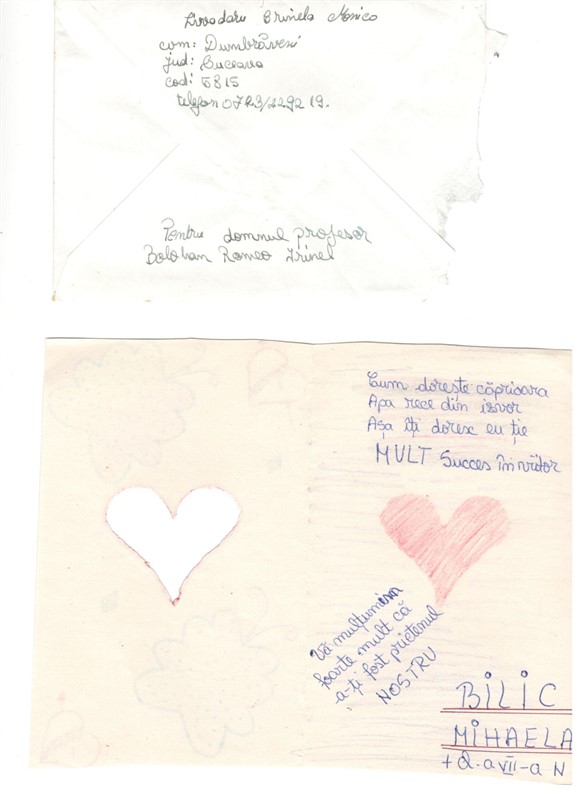 Livadaru Brînela Monica
com: Dumbrăveni
jud: Suceava
cod: 5815
telefon
Pentru domnul profesor
Bolohan Romeo Irinel
Cum dorește căprioara
Apa rece din izvor
Așa îți doresc eu ție
MULT Succes în viitor
Vă mulțumim
foarte mult că
a-ți fost prietenul
NOSTRU
BiLiC
MiHAELA
a VII-a